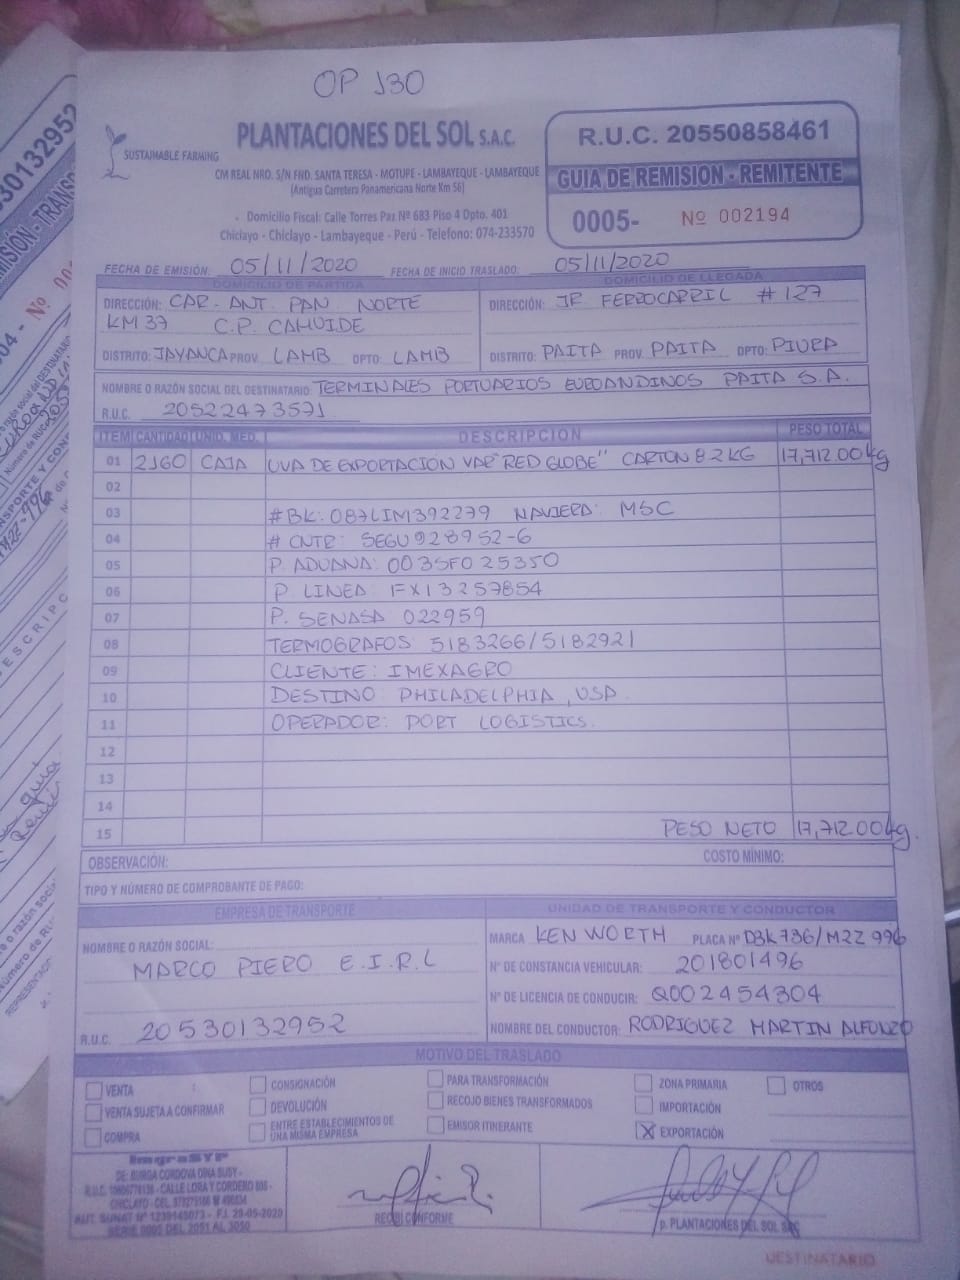 OP 130
PLANTACIONES DEL SOL S.A.C.
SUSTAINABLE FARMING
CM REAL NRO. S/N FND. SANTA TERESA - MOTUPE - LAMBAYEQUE - LAMBAYEQUE
(Antigua Carretera Panamericana Norte Km 56)
Domicilio Fiscal: Calle Torres Paz Nº 683 Piso 4 Dpto. 401
Chiclayo - Chiclayo - Lambayeque - Perú - Telefono: 074-233570
R.U.C. 20550858461
GUIA DE REMISION - REMITENTE
0005- Nº 002194
FECHA DE EMISIÓN: 05/11/2020 FECHA DE INICIO TRASLADO: 05/11/2020
DOMICILIO DE PARTIDA
DIRECCIÓN: CAR. ANT. PAN. NORTE
KM 37 C.P. CAHUIDE
DISTRITO: JAYANCA PROV. LAMB DPTO: LAMB
DOMICILIO DE LLEGADA
DIRECCIÓN: JR FERROCARRIL #127
DISTRITO: PAITA PROV. PAITA DPTO: PIURA
NOMBRE O RAZÓN SOCIAL DEL DESTINATARIO: TERMINALES PORTUARIOS EUROANDINOS PAITA S.A.
R.U.C. 20522473571
ITEM CANTIDAD UNID. MED. DESCRIPCION PESO TOTAL
01 2160 CAJA UVA DE EXPORTACIÓN VAR "RED GLOBE" CARTON 8.2 KG 17,712.00 kg
02
03 #BK: 087LIM392279 NAVIERA: MSC
04 # CNTR: SEGU 928952-6
05 P. ADUANA: 003SF025350
06 P. LINEA: FX13257854
07 P. SENASA 022959
08 TERMOGRAFOS: 5183266/5182921
09 CLIENTE: IMEXAGRO
10 DESTINO: PHILADELPHIA, USA.
11 OPERADOR: PORT LOGISTICS.
12
13
14
15 PESO NETO 17,712.00 kg.
OBSERVACIÓN: COSTO MÍNIMO:
TIPO Y NÚMERO DE COMPROBANTE DE PAGO:
EMPRESA DE TRANSPORTE
NOMBRE O RAZÓN SOCIAL:
MARCO PIERO E.I.R.L
R.U.C. 20530132952
UNIDAD DE TRANSPORTE Y CONDUCTOR
MARCA KEN WORTH PLACA Nº D3K736/M2Z 996
N° DE CONSTANCIA VEHICULAR: 201801496
N° DE LICENCIA DE CONDUCIR: Q002454304
NOMBRE DEL CONDUCTOR: RODRIGUEZ MARTIN ALFONZO
MOTIVO DEL TRASLADO
VENTA
VENTA SUJETA A CONFIRMAR
COMPRA
CONSIGNACIÓN
DEVOLUCIÓN
ENTRE ESTABLECIMIENTOS DE
UNA MISMA EMPRESA
PARA TRANSFORMACIÓN
RECOJO BIENES TRANSFORMADOS
EMISOR ITINERANTE
ZONA PRIMARIA
IMPORTACIÓN
X EXPORTACIÓN
OTROS
ImgraSYP
DE: BURGA CORDOVA DINA SUSY -
CALLE LORA Y CORDERO
SERIE 0005 DEL 2051 AL 3050
RECIBÍ CONFORME
p. PLANTACIONES DEL SOL SAC
DESTINATARIO
30132952